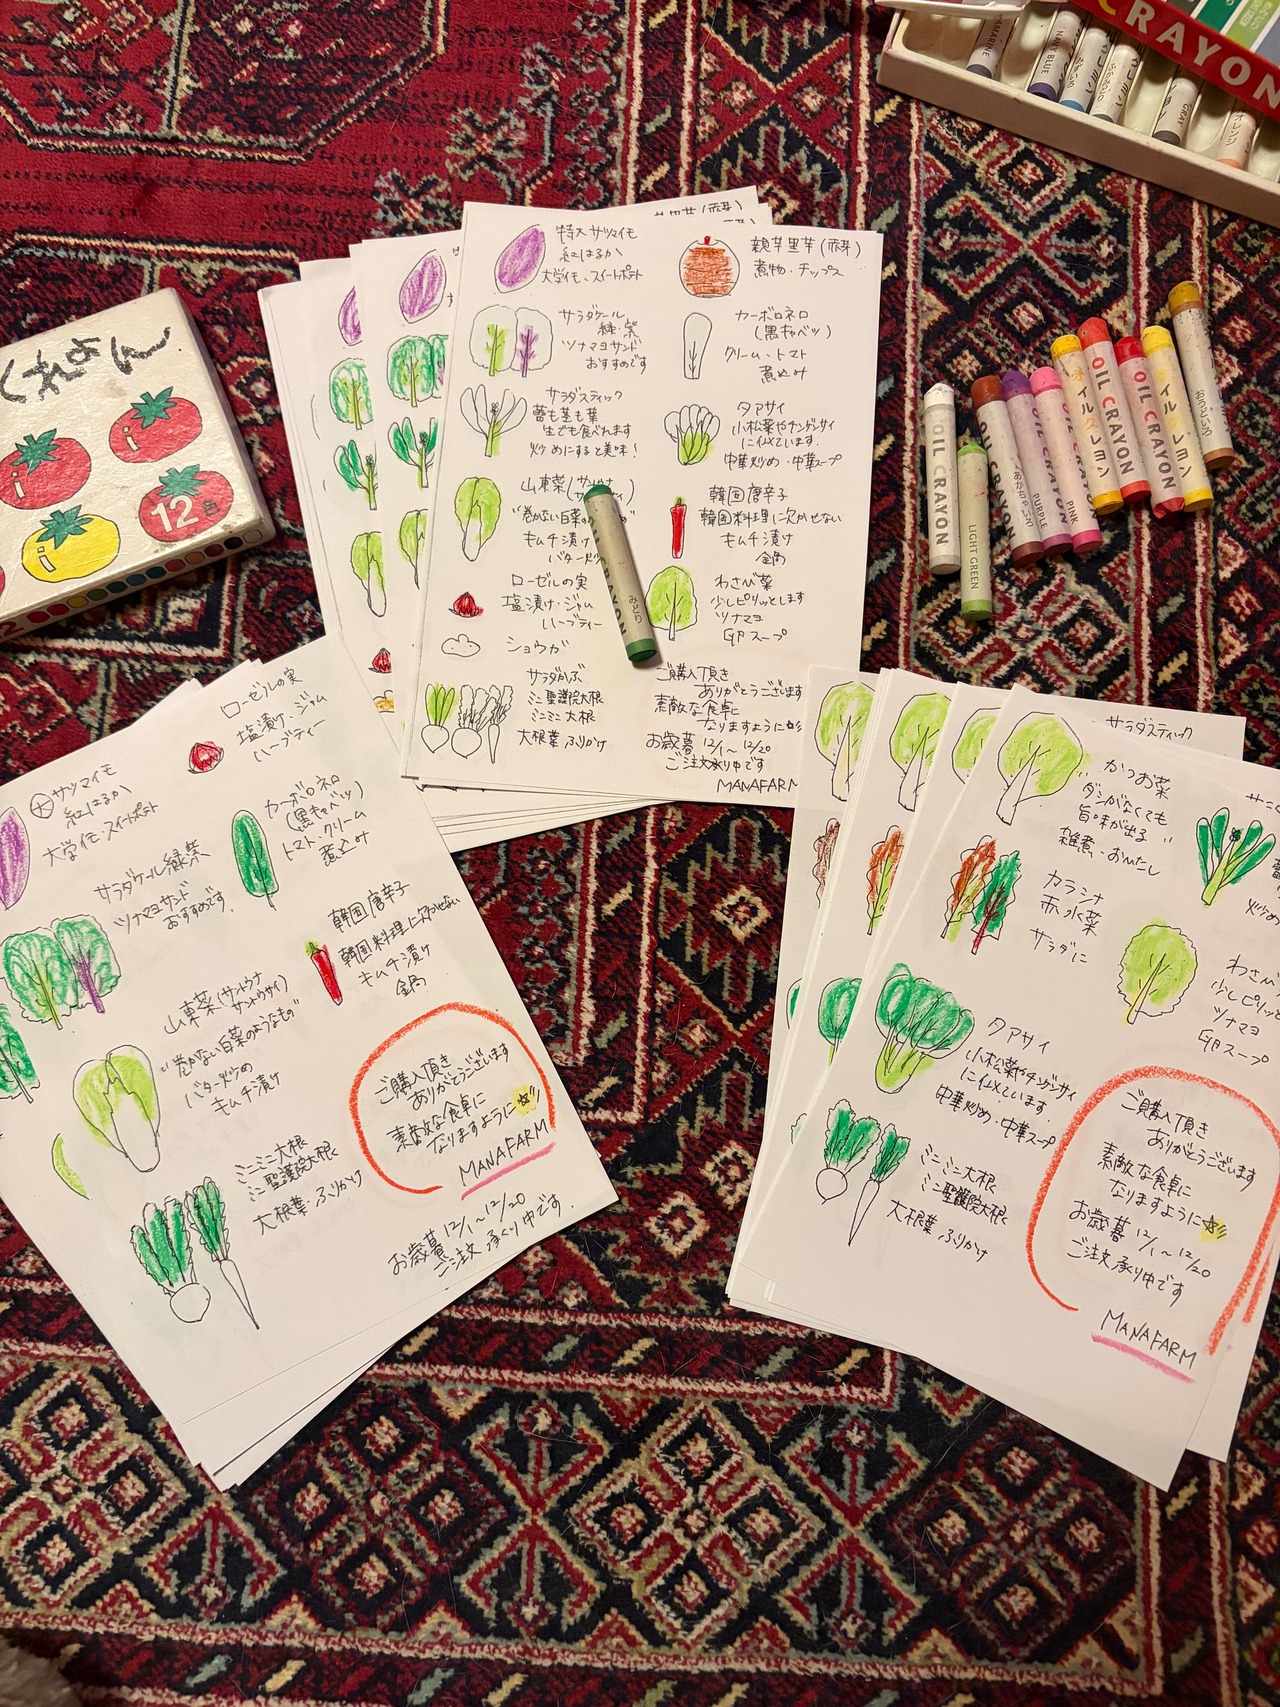 CRAYON
NAVY BLUE
GRAY
オレンジ
12色
特大サツマイモ
紅はるか
大学イモ、スイートポテト
サラダケール
緑・紫
ツナマヨサンド
おすすめです
サラダスティック
蕾も茎も葉
生でも食べれます
炒めにすると美味!
山東菜(サントウナ
"巻かない白菜の
キムチ漬け
バター炒め
ローゼルの実
塩漬け・ジャム
ハーブティー
ショウガ
サラダかぶ
ミニ聖護院大根
ミニミニ大根
大根葉ふりかけ
親芋里芋(赤芽)
煮物・チップス
カーボロネロ
(黒キャベツ)
クリーム・トマト
煮込み
タアサイ
小松菜やチンゲンサイ
に似ています.
中華炒め・中華スープ
韓国唐辛子
韓国料理に欠かせない
キムチ漬け
鍋
わさび菜
少しピリッとします
ツナマヨ
卵スープ
ご購入頂き
ありがとうございます
素敵な食卓に
なりますように☆彡
お歳暮 12/1〜12/20
ご注文承り中です
MANAFARM
OIL CRAYON
LIGHT GREEN
あかちゃいろ
PURPLE
PINK
オイルクレヨン
OIL CRAYON
OIL CRAYON
オイルクレヨン
おうどいろ
CRAYON
みどり
ローゼルの実
塩漬け・ジャム
ハーブティー
大サツマイモ
紅はるか
大学イモ・スイートポテト
カーボロネロ
(黒キャベツ)
トマト・クリーム
煮込み
サラダケール緑紫
ツナマヨサンド
おすすめです.
韓国唐辛子
韓国料理に欠かせない
キムチ漬け
鍋
山東菜(サントウナ
サントウサイ)
"巻かない白菜のようなもの"
バター炒め
キムチ漬け
ご購入頂き
ありがとうございます
素敵な食卓に
なりますように☆彡
MANAFARM
ミニミニ大根
ミニ聖護院大根
大根葉ふりかけ
お歳暮 12/1〜12/20
ご注文承り中です.
サラダスティック
かつお菜
"ダシがなくても
旨味が出る"
雑煮、おひたし
カラシナ
赤水菜
サラダに
わさび
少しピリッと
ツナマヨ
卵スープ
タアサイ
小松菜やチンゲンサイ
に似ています
中華炒め・中華スープ
ミニミニ大根
ミニ聖護院大根
大根葉ふりかけ
ご購入頂き
ありがとうございます
素敵な食卓に
なりますように☆彡
お歳暮 12/1〜12/20
ご注文承り中です
MANAFARM